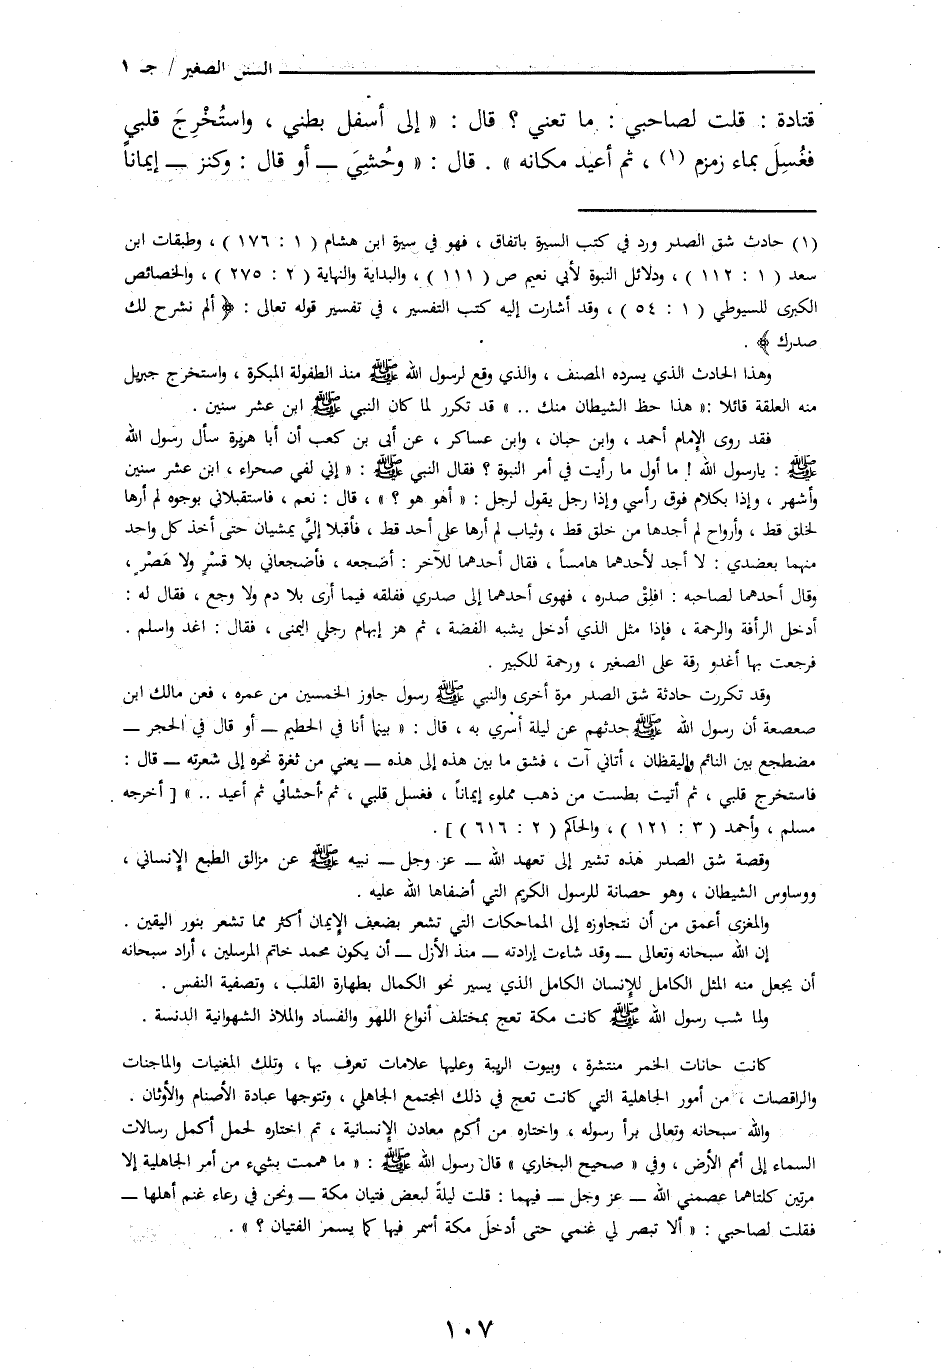 السنن الصغير / جـ ١
قتادة : قلت لصاحبي : ما تعني ؟ قال : « إلى أسفل بطني ، واستُخْرِجَ قلبي
فغُسِلَ بماء زمزم (١) ، ثم أعيد مكانه » . قال : « وحُشِيَ ــ أو قال : وكنز ــ إيماناً
(١) حادث شق الصدر ورد في كتب السيرة باتفاق ، فهو في سيرة ابن هشام ( ١ : ١٧٦ ) ، وطبقات ابن
سعد ( ١ : ١١٢ ) ، ودلائل النبوة لأبي نعيم ص ( ١١١ ) ، والبداية والنهاية ( ٢ : ٢٧٥ ) ، والخصائص
الكبرى للسيوطي ( ١ : ٥٤ ) ، وقد أشارت إليه كتب التفسير ، في تفسير قوله تعالى : ﴿ ألم نشرح لك
صدرك ﴾ .
وهذا الحادث الذي يسرده المصنف ، والذي وقع لرسول الله ﷺ منذ الطفولة المبكرة ، واستخرج جبريل
منه العلقة قائلا :« هذا حظ الشيطان منك .. » قد تكرر لما كان النبي ﷺ ابن عشر سنين .
فقد روى الإمام أحمد ، وابن حبان ، وابن عساكر ، عن أبى بن كعب أن أبا هريرة سأل رسول الله
ﷺ : يارسول الله ! ما أول ما رأيت في أمر النبوة ؟ فقال النبي ﷺ : « إني لفي صحراء ، ابن عشر سنين
وأشهر ، وإذا بكلام فوق رأسي وإذا رجل يقول لرجل : « أهو هو ؟ » ، قال : نعم ، فاستقبلاني بوجوه لم أرها
لخلق قط ، وأرواح لم أجدها من خلق قط ، وثياب لم أرها على أحد قط ، فأقبلا إليَّ يمشيان حتى أخذ كل واحد
منهما بعضدي : لا أجد لأحدهما هامساً ، فقال أحدهما للآخر : أضجعه ، فأضجعاني بلا قسْرٍ ولا هَصْرٍ ،
وقال أحدهما لصاحبه : افلِقْ صدره ، فهوى أحدهما إلى صدري ففلقه فيما أرى بلا دم ولا وجع ، فقال له :
أدخل الرأفة والرحمة ، فإذا مثل الذي أدخل يشبه الفضة ، ثم هز إبهام رجلي اليمنى ، فقال : اغد واسلم .
فرجعت بها أغدو رقة على الصغير ، ورحمة للكبير .
وقد تكررت حادثة شق الصدر مرة أخرى والنبي ﷺ رسول جاوز الخمسين من عمره ، فعن مالك ابن
صعصعة أن رسول الله ﷺ حدثهم عن ليلة أسري به ، قال : « بينا أنا في الحطيم ــ أو قال في الحجر ــ
مضطجع بين النائم واليقظان ، أتاني آت ، فشق ما بين هذه إلى هذه ــ يعني من ثغرة نحره إلى شعرته ــ قال :
فاستخرج قلبي ، ثم أتيت بطست من ذهب مملوء إيماناً ، فغسل قلبي ، ثم أحشائي ثم أعيد .. » [ أخرجه
مسلم ، وأحمد ( ٣ : ١٢١ ) ، والحاكم ( ٢ : ٦١٦ ) ] .
وقصة شق الصدر هذه تشير إلى تعهد الله ــ عز وجل ــ نبيه ﷺ عن مزالق الطبع الإنساني ،
ووساوس الشيطان ، وهو حصانة للرسول الكريم التي أضفاها الله عليه .
والمغزى أعمق من أن نتجاوزه إلى المماحكات التي تشعر بضعف الإيمان أكثر مما تشعر بنور اليقين .
إن الله سبحانه وتعالى ــ وقد شاءت إرادته ــ منذ الأزل ــ أن يكون محمد خاتم المرسلين ، أراد سبحانه
أن يجعل منه المثل الكامل للإنسان الكامل الذي يسير نحو الكمال بطهارة القلب ، وتصفية النفس .
ولما شب رسول الله ﷺ كانت مكة تعج بمختلف أنواع اللهو والفساد والملاذ الشهوانية الدنسة .
كانت حانات الخمر منتشرة ، وبيوت الريبة وعليها علامات تعرف بها ، وتلك المغنيات والماجنات
والراقصات ، من أمور الجاهلية التي كانت تعج في ذلك المجتمع الجاهلي ، وتتوجها عبادة الأصنام والأوثان .
والله سبحانه وتعالى برأ رسوله ، واختاره من أكرم معادن الإنسانية ، ثم اختاره لحمل أكمل رسالات
السماء إلى أمم الأرض ، وفي « صحيح البخاري » قال رسول الله ﷺ : « ما هممت بشيء من أمر الجاهلية إلا
مرتين كلتاهما عصمني الله ــ عز وجل ــ فيهما : قلت ليلةً لبعض فتيان مكة ــ ونحن في رعاء غنم أهلها ــ
فقلت لصاحبي : « ألا تبصر لي غنمي حتى أدخلَ مكة أسمر فيها كما يسمر الفتيان ؟ » .
١٠٧